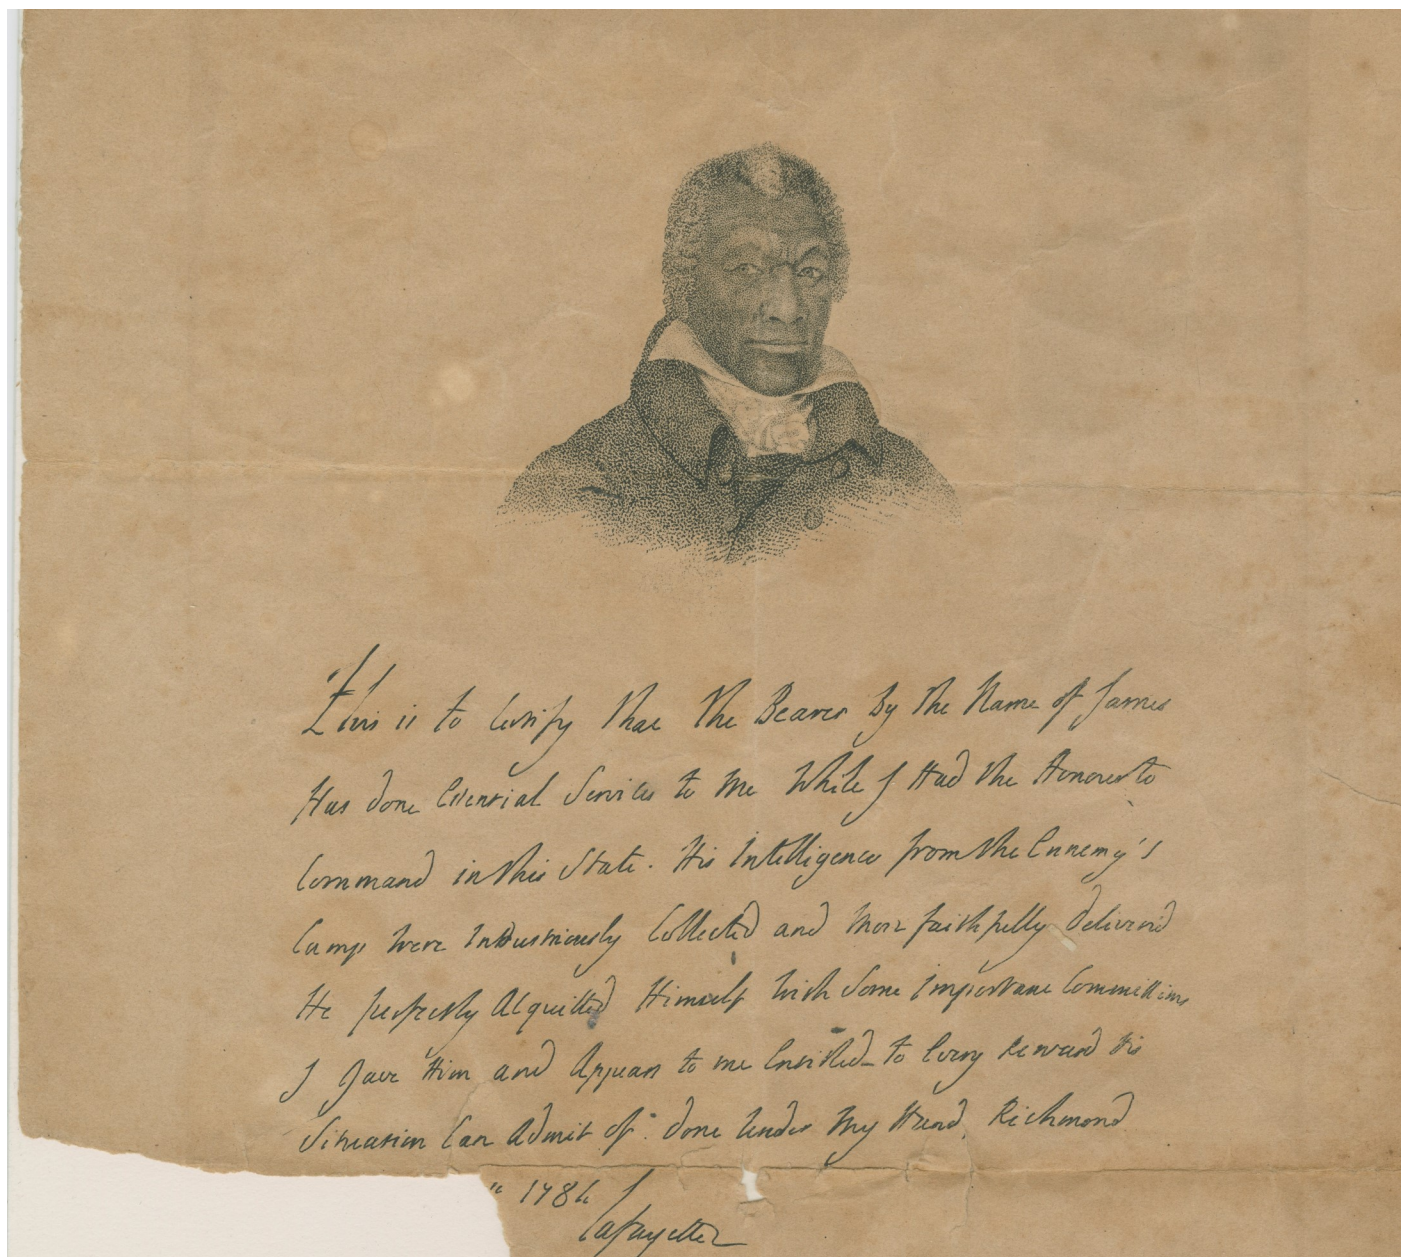 This is to Certify that the Bearer By the Name of James
Has done Essential Services to me While I Had the Honour to
Command in this State. His Intelligences from the Ennemy's
Camp were Industriously Collected and More faithfully deliver'd
He perfectly Acquitted Himself with Some Important Commissions
I Gave Him and Appears to me Entitled to Every Reward His
Situation Can Admit of. Done Under My Hand, Richmond
1784
Lafayette